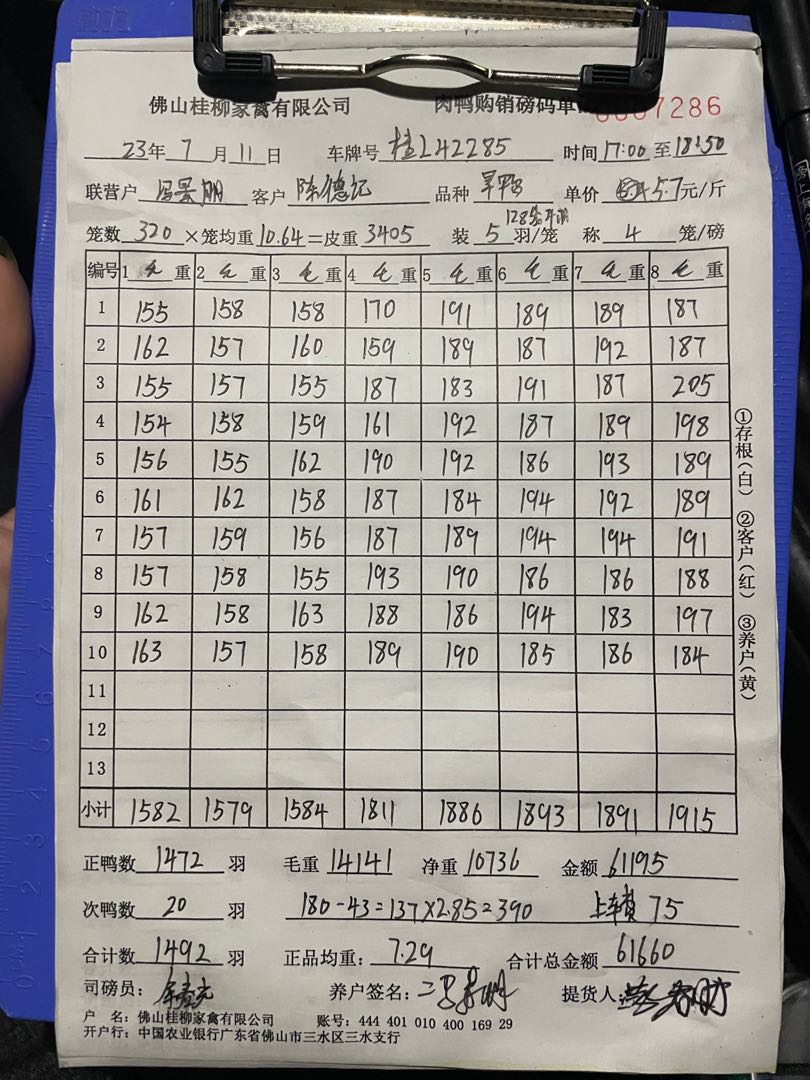 佛山桂柳家禽有限公司 肉鸭购销磅码单 7286
23年 7 月 11 日 车牌号 桂L42285 时间 17:00 至 18:50
联营户 客户 陈德记 品种 单价 5.7元/斤
128笼
笼数 320 ×笼均重 10.64 =皮重 3405 装 5 羽/笼 称 4 笼/磅
编号 1 毛 重 2 毛 重 3 毛 重 4 毛 重 5 毛 重 6 毛 重 7 毛 重 8 毛 重
1 155 158 158 170 191 189 189 187
2 162 157 160 159 189 187 192 187
3 155 157 155 187 183 191 187 205
4 154 158 159 161 192 187 189 198
5 156 155 162 190 192 186 193 189
6 161 162 158 187 184 194 192 189
7 157 159 156 187 189 194 194 191
8 157 158 155 193 190 186 186 188
9 162 158 163 188 186 194 183 197
10 163 157 158 189 190 185 186 184
11
12
13
小计 1582 1579 1584 1811 1886 1893 1891 1915
①存根(白) ②客户(红) ③养户(黄)
正鸭数 1472 羽 毛重 14141 净重 10736 金额 61195
次鸭数 20 羽 180-43=137×2.85=390 上车费 75
合计数 1492 羽 正品均重: 7.29 合计总金额 61660
司磅员: 养户签名: 提货人:
户 名: 佛山桂柳家禽有限公司 账号: 444 401 010 400 169 29
开户行: 中国农业银行广东省佛山市三水区三水支行